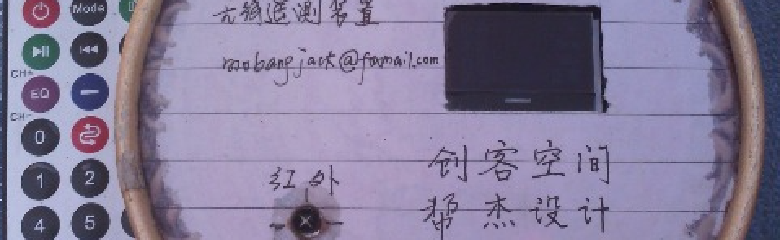 无线遥测装置
mobangjack@foxmail.com
创客空间
帮杰设计
红外
Mode
CH-
EQ
CH+
0
1
2
4
5